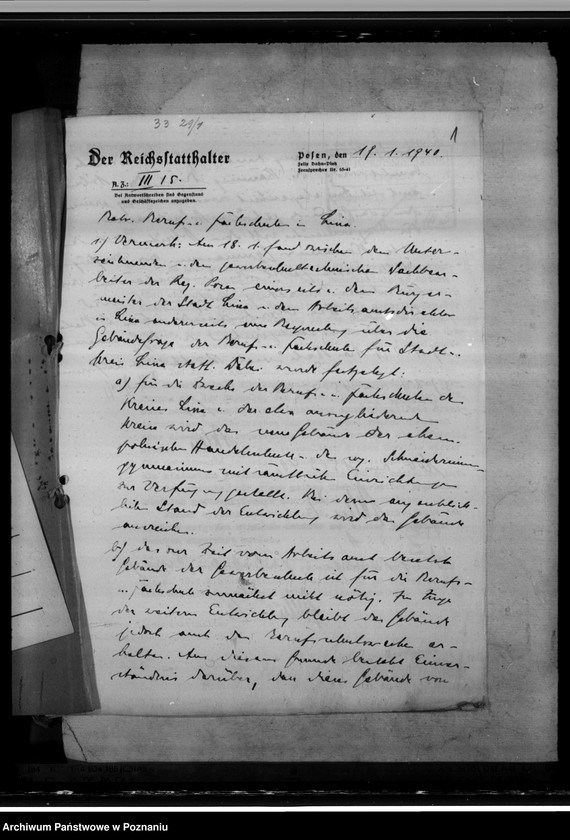 33 29/9
1
Der Reichsstatthalter
Posen, den 19. 1. 1940.
Fernsprecher Nr. 40-41
A. Z.: III 15.
Bei Antwortschreiben sind Gegenstand
und Geschäftszeichen anzugeben.
Betr. Beruf- u. Fachschulen in Lissa.
1) Vermerk: Am 18. 1. fand zwischen dem Unter-
zeichnenden u. dem gewerbeschultechnischen Sachbear-
beiter der Reg. Posen einerseits u. dem Bürger-
meister der Stadt Lissa u. dem Arbeitsamtsdirektor
in Lissa andererseits eine Besprechung über die
Gebäudefrage der Beruf- u. Fachschule für Stadt u.
Kreis Lissa statt. Dabei wurde festgelegt:
a) für die Zwecke der Beruf- u. Fachschulen des
Kreises Lissa u. des etwa anzugliedernden
Kreises wird das neue Gebäude der ehem.
polnischen Handelsschule u. des sog. Schneiderinnen-
gymnasiums mit sämtlichen Einrichtungen
zur Verfügung gestellt. Bei dem augenblick-
lichen Stand der Entwicklung wird das Gebäude
ausreichen.
b) das zur Zeit vom Arbeitsamt besetzte
Gebäude der Gewerbeschule ist für die Berufs-
u. Fachschule zunächst nicht nötig. Im Zuge
der weiteren Entwicklung bleibt das Gebäude
jedoch auch den Berufsschulzwecken er-
halten. Aus diesem Grunde besteht Einver-
ständnis darüber, dass dieses Gebäude vom
Archiwum Państwowe w Poznaniu